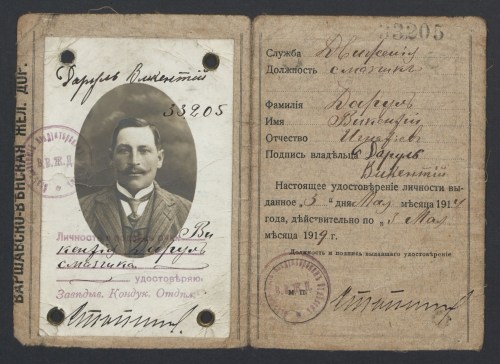 ВАРШАВСКО-ВѢНСКАЯ ЖЕЛ. ДОР.
Даруль Викентій
33205
В.В.Ж.Д.
Личность
Ви
кентія Даруль
смазчика
удостовѣряю
Завѣдыв. Кондук. Отдѣл.
33205
Служба Движенія
Должность смазчикъ
Фамилія Даруль
Имя Викентій
Отчество
Подпись владѣльца Даруль
Викентій
Настоящее удостовѣреніе личности вы-
данное „5" дня Мая мѣсяца 1914
года, дѣйствительно по „5 Мая
мѣсяца 1919 г.
Должность и подпись выдавшаго удостовѣреніе
М. П.